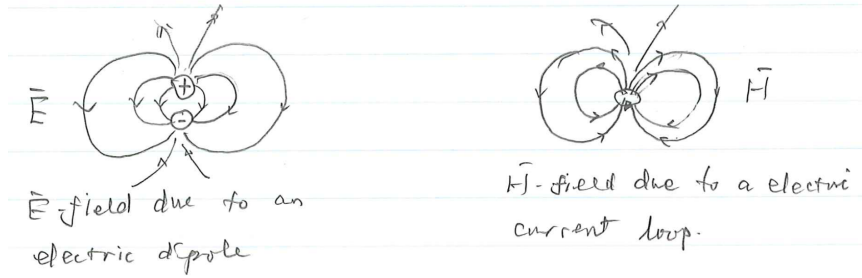 Ē
+
-
Ē-field due to an
electric dipole
H̄
H̄-field due to a electric
current loop.